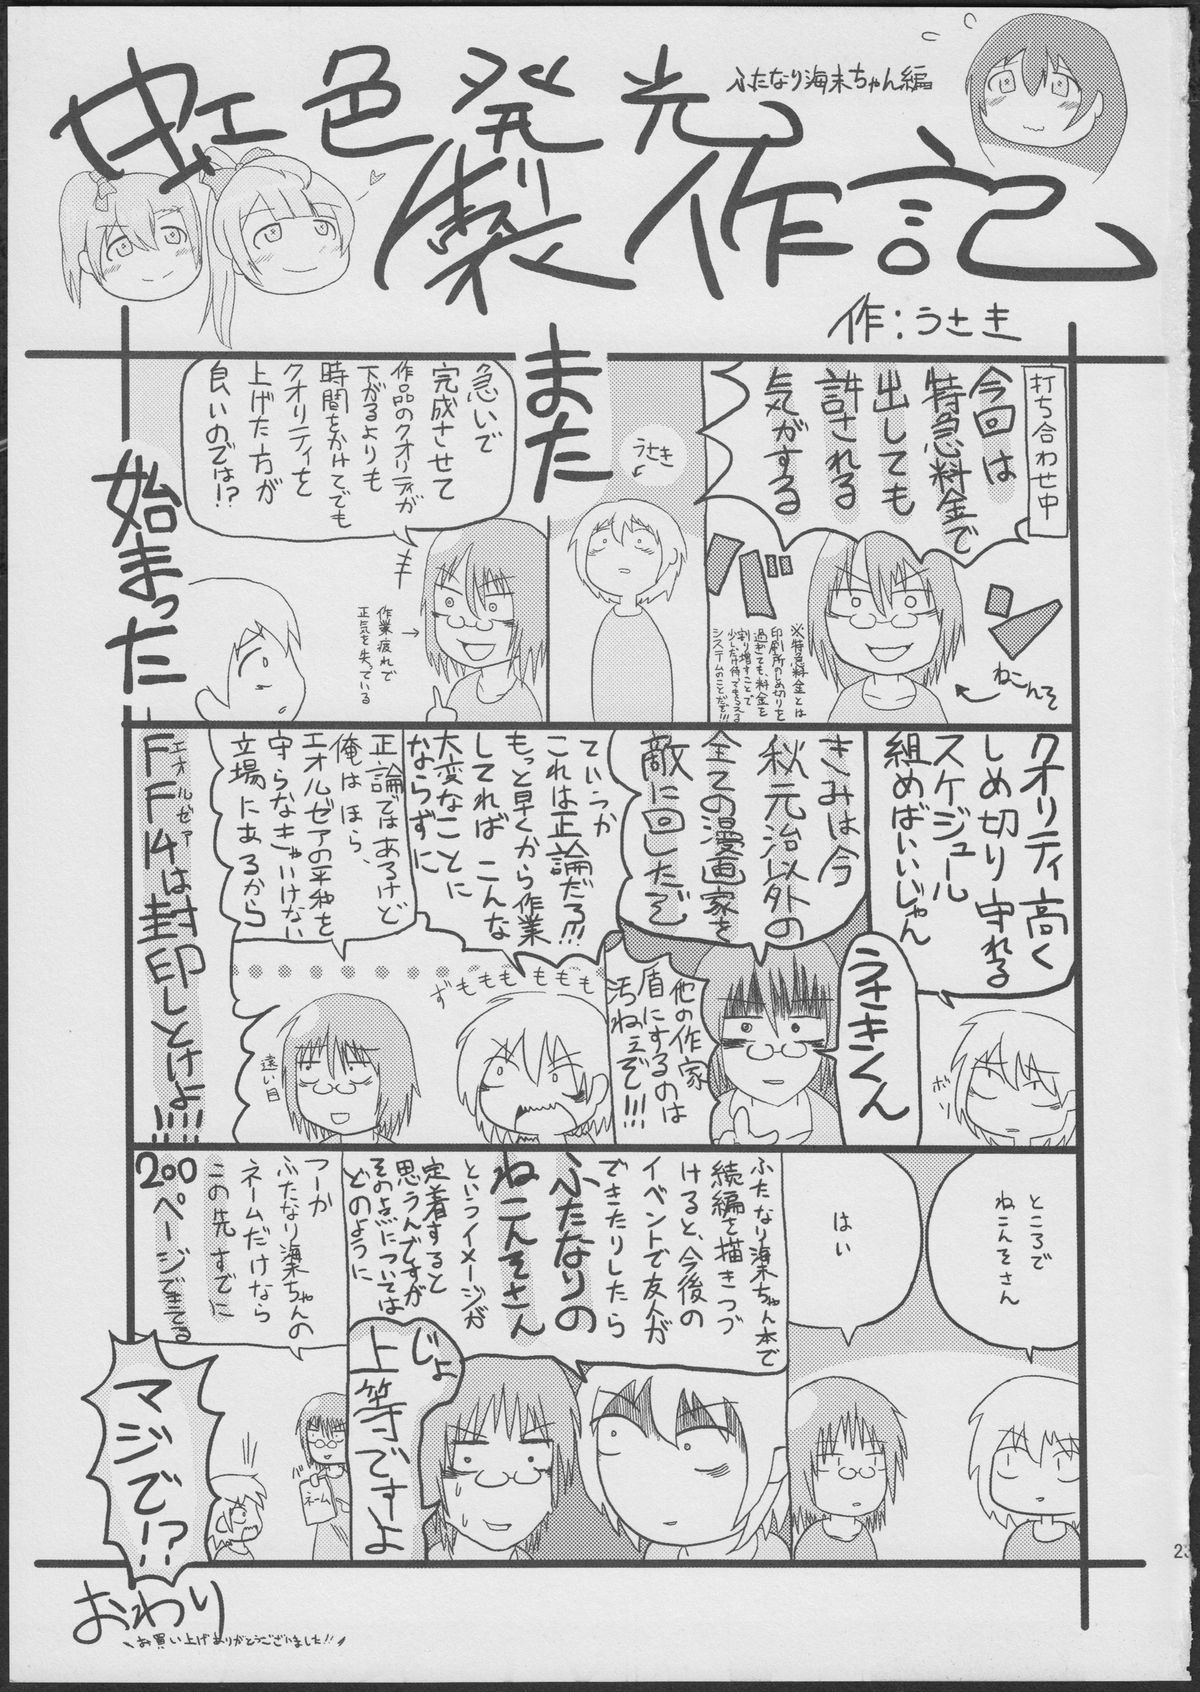 虹色発光
製作記
ふたなり海未ちゃん編
作:うさき
打ち合わせ中
今回は
特急料金で
出しても
許される
気がする
バ
ン
ねこんそ
※特急料金とは
印刷所のしめ切りを
過ぎても、料金を
割り増すことで
少しだけ待ってもらえる
システムのことだぞ!!!
うさき
また
急いで
完成させて
作品のクオリティが
下がるよりも
時間をかけてでも
クオリティを
上げた方が
良いのでは!?
作業疲れで
正気を失っている
始まった
クオリティ高く
しめ切り守れる
スケジュール
組めばいいじゃん
ボソ
うさきくん
きみは今
秋元治以外の
全ての漫画家を
敵に回したぞ
他の作家
盾にするのは
汚ねぇぞ!!!
ていうか
これは正論だろ!!!
もっと早くから作業
してれば こんな
大変なことに
ならずに
ずももももももも
正論ではあるけど
俺はほら、
エオルゼアの平和を
守らなきゃいけない
立場にあるから
遠い目
エオルゼア
FF14は封印しとけよ!!!!
ところで
ねこんそさん
はい
ふたなり海未ちゃん本で
続編を描きつづ
けると、今後の
イベントで友人が
できたりしたら
ふたなりの
ねこんそさん
というイメージが
定着すると
思うんですが
そのへんについては
どのように
じょ
上等ですよ
つーか
ふたなり海未ちゃんの
ネームだけなら
この先すでに
200ページできてる
バッ
ネーム
マジで!?
おわり
お買い上げありがとうございました!!
23